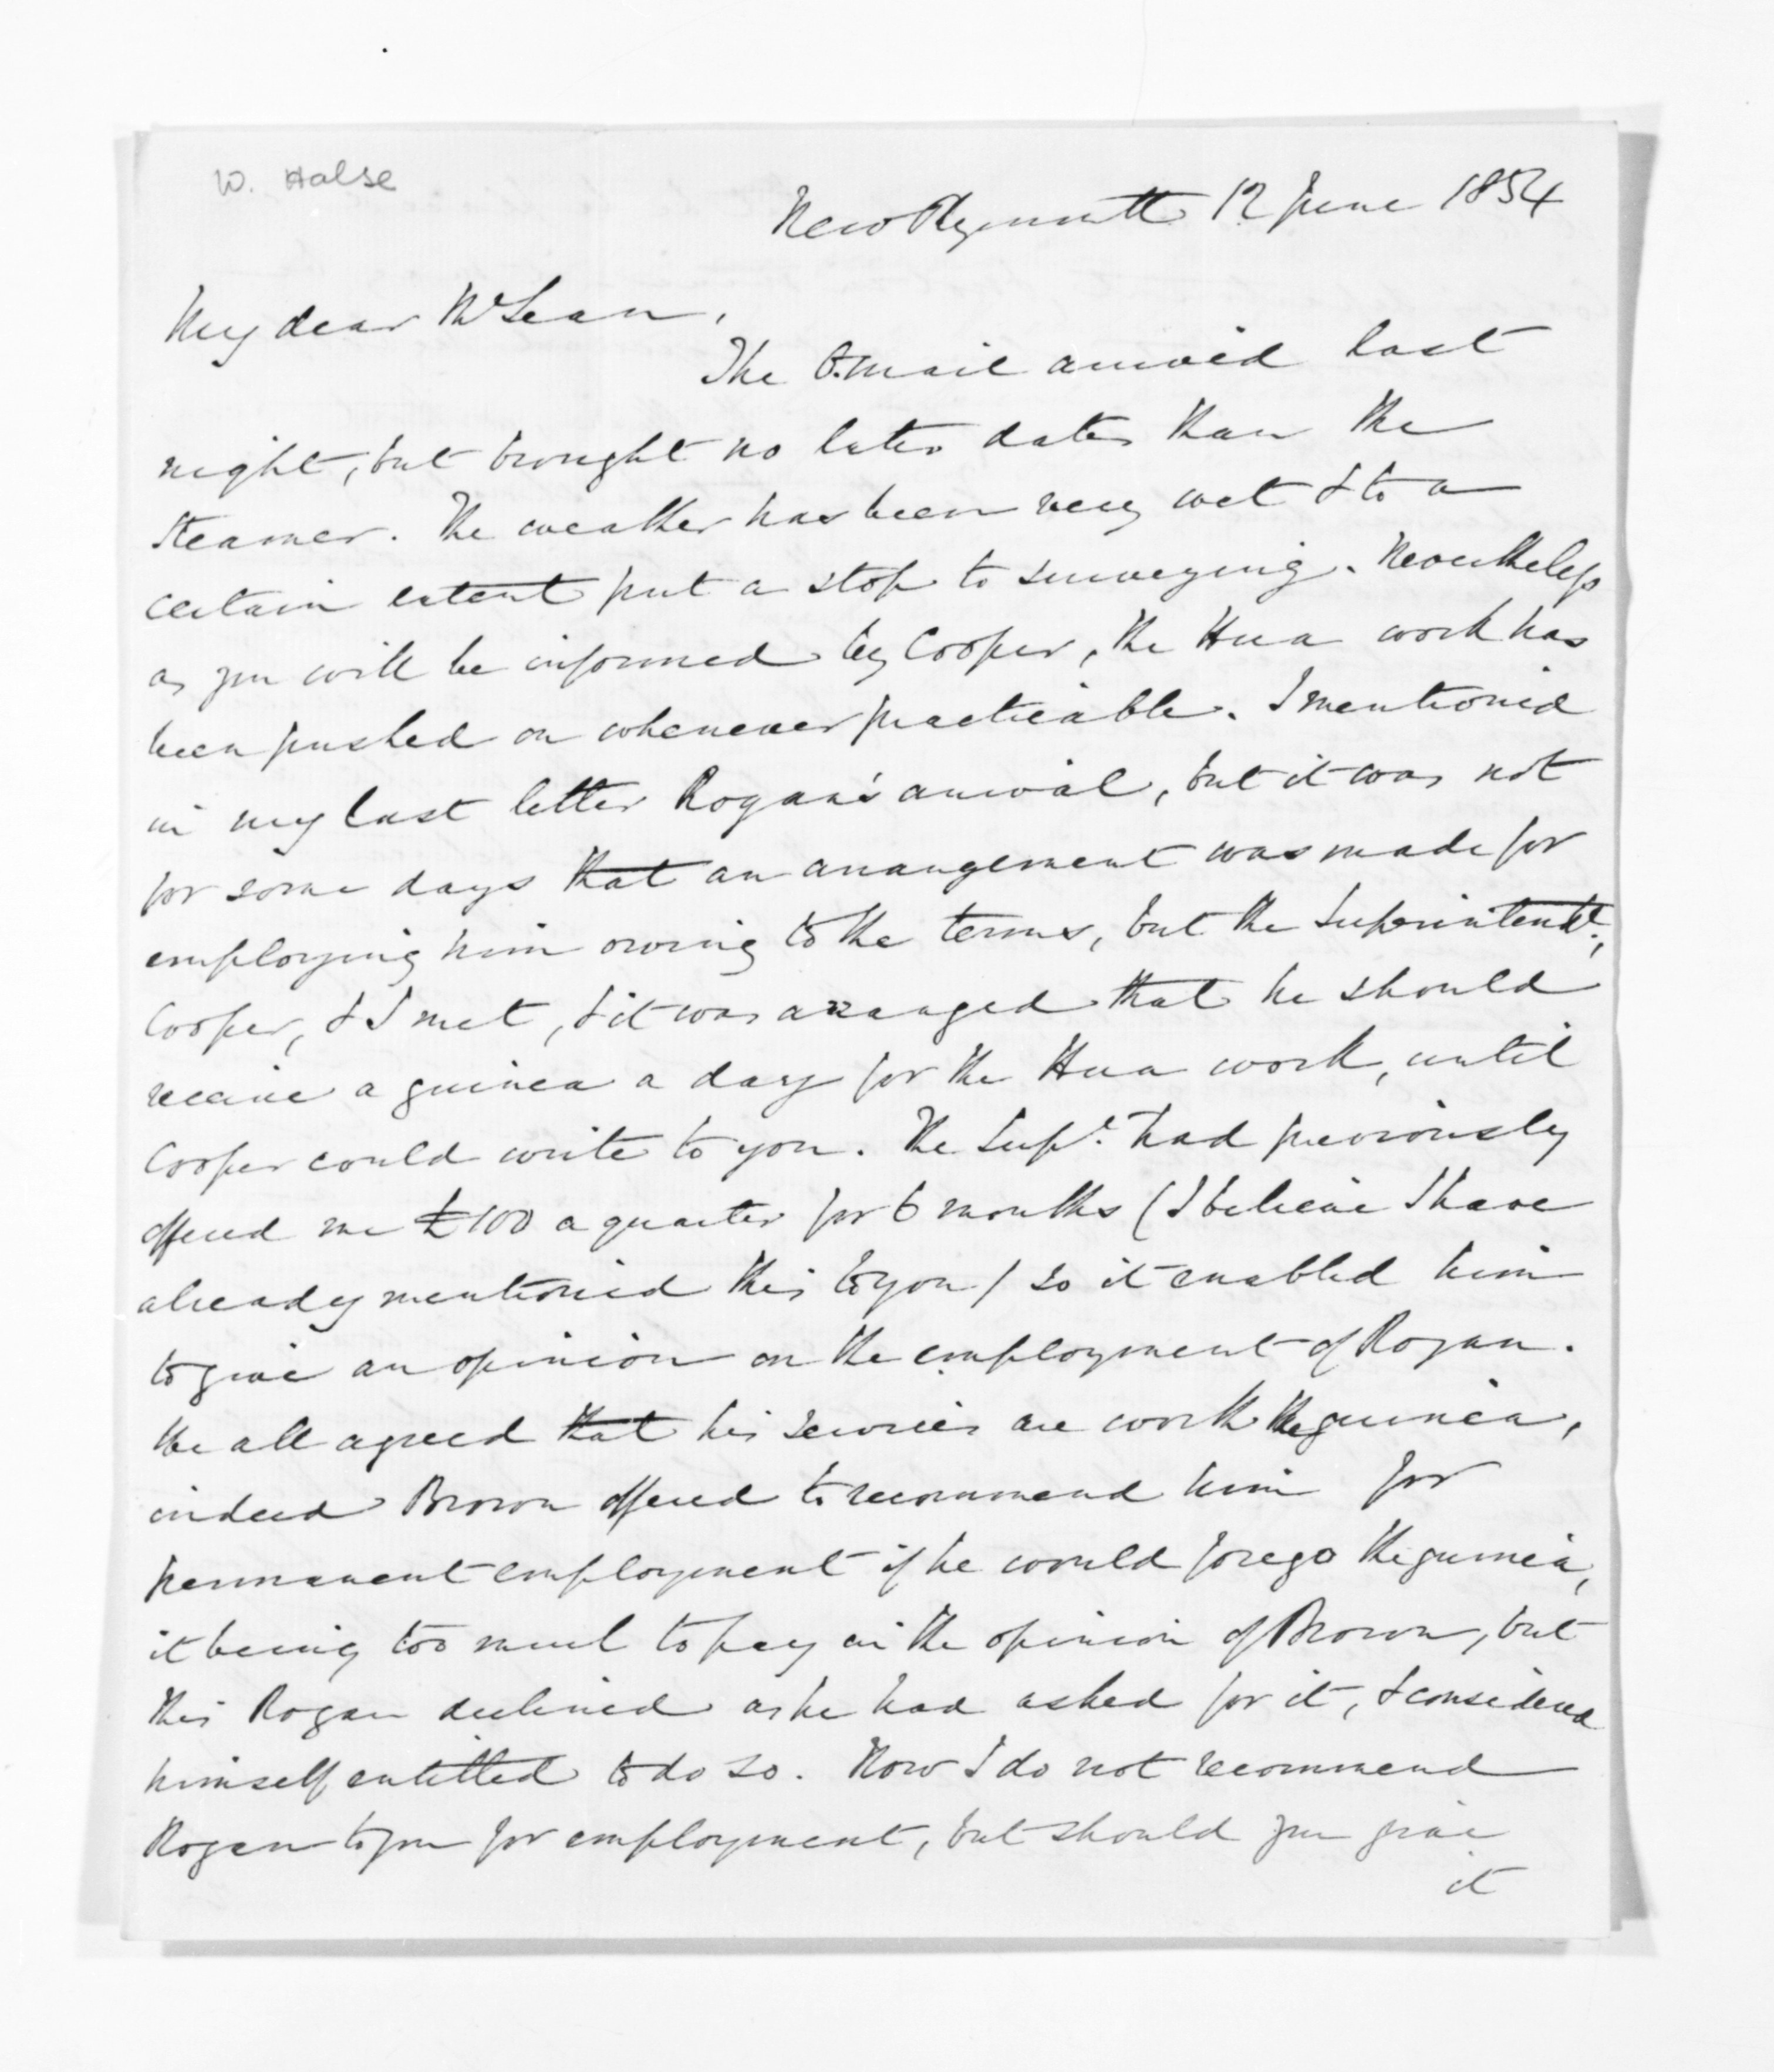 W. Halse
New Plymouth 12 June 1854
My dear McLean,
The O. Mail arrived last
night, but brought no later dates than the
Steamer. The weather has been very wet & to a
certain extent put a stop to surveying. Nevertheless
as you will be informed by Cooper, the Hua work has
been pushed on whenever practicable. I mentioned
in my last letter Rogan's arrival, but it was not
for some days that an arrangement was made for
employing him owing to the terms, but the Superintendt.,
Cooper, & I met, & it was arranged that he should
receive a guinea a day for the Hua work, until
Cooper could write to you. The Supt. had previously
offered me £100 a quarter for 6 months (I believe I have
already mentioned this to you) so it enabled him
to give an opinion on the employment of Rogan.
We all agreed that his services are worth the guinea,
indeed Brown offered to recommend him for
permanent employment if he would forego the guinea,
it being too much to pay in the opinion of Brown, but
this Rogan declined as he had asked for it, & considered
himself entitled to do so. Now I do not recommend
Rogan to you for employment, but should you give
it